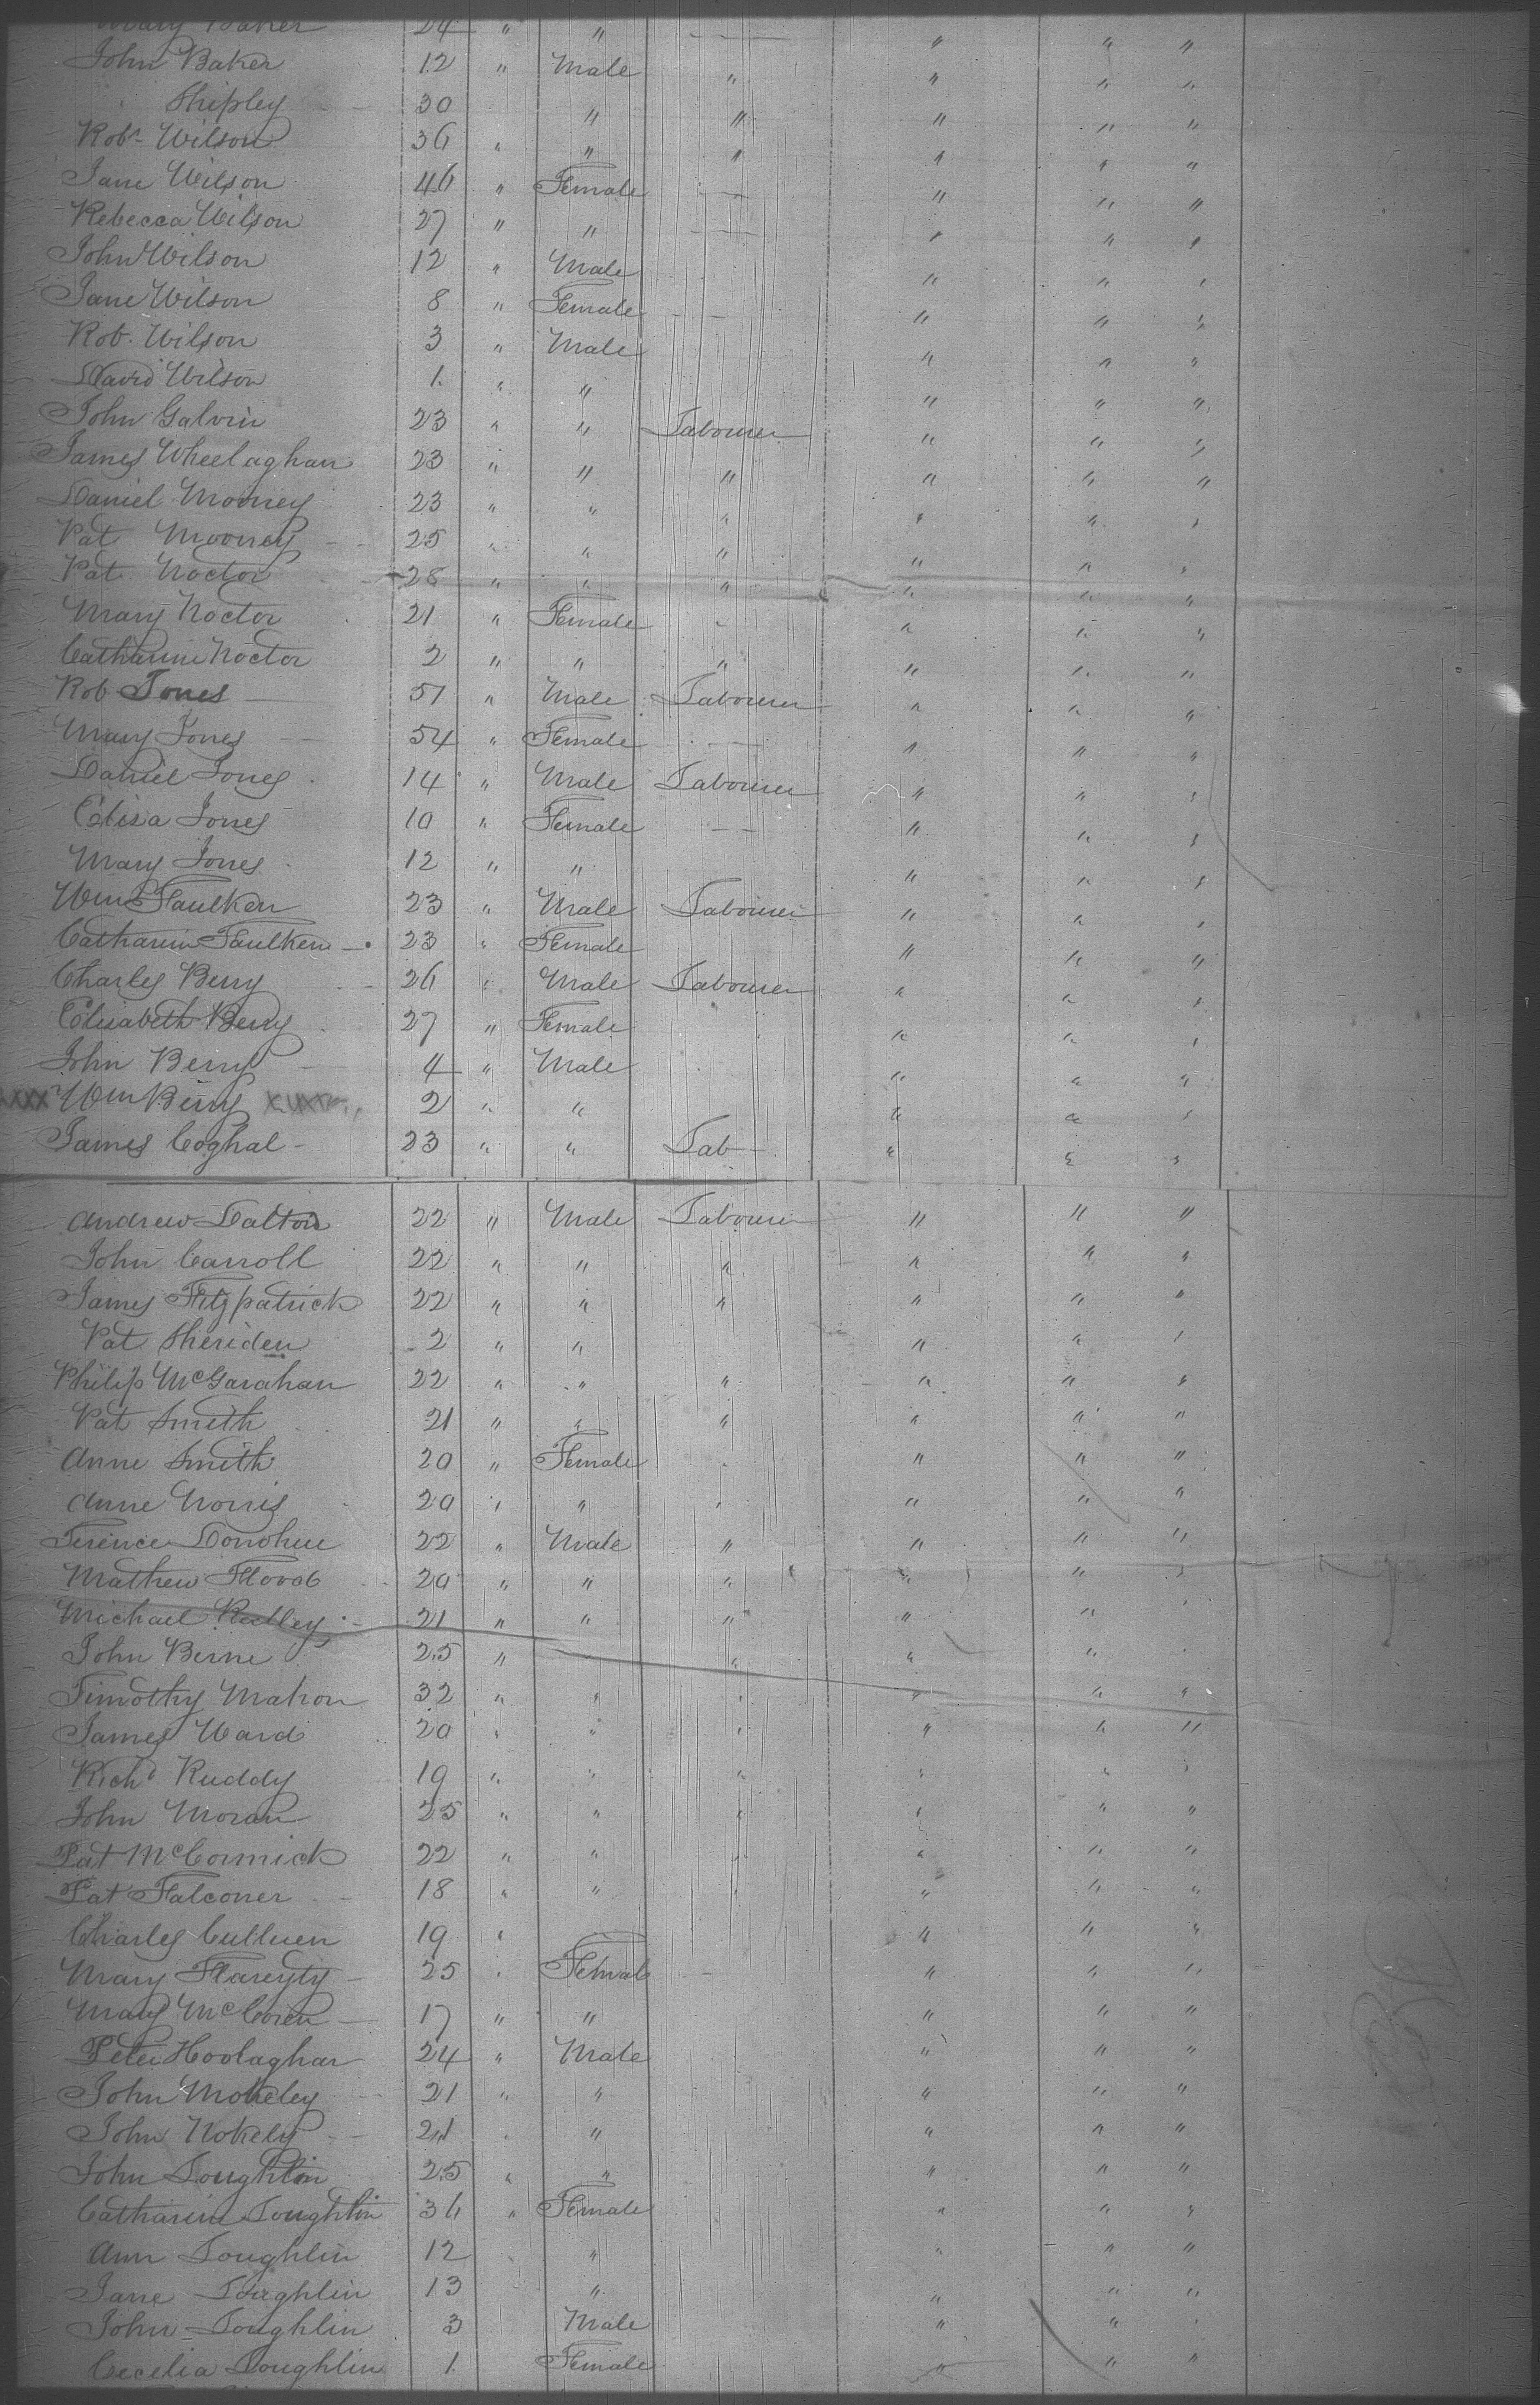 Mary Baker 24 " " — " " "
John Baker 12 " Male " " " "
Shipley 30 " " " " "
Robt Wilson 36 " " " " " "
Jane Wilson 46 " Female — " " "
Rebecca Wilson 27 " " — " " "
John Wilson 12 " Male " " "
Jane Wilson 8 " Female — " " "
Rob. Wilson 3 " Male " " "
David Wilson 1. " " " " "
John Galvin 23 " " Labourer " " "
James Wheelaghan 23 " " " " " "
Daniel Mooney 23 " " " " " "
Pat Mooney 25 " " " " " "
Pat Noctor 28 " " " " " "
Mary Noctor 21 " Female - " " "
Catharine Noctor 2 " " " " " "
Rob Jones 51 " Male Labourer " " "
Mary Jones 54 " Female — " " "
Daniel Jones 14 " Male Labourer " " "
Elisa Jones 10 " Female — " " "
Mary Jones 12 " " " " "
Wm Faulken 23 " Male Labourer " " "
Catharine Faulken 23 " Female " " "
Charles Berry 26 " Male Labourer " " "
Elisabeth Berry 27 " Female " " "
John Berry 4 " Male " " "
Wm Berry 2 " " " " "
James Coghal 23 " " Lab " " "
Andrew Dalton 22 " Male Labourer " " "
John Carroll 22 " " " " " "
James Fitzpatrick 22 " " " " " "
Pat Sheriden 2 " " " " "
Philip McGarahan 22 " " " " " "
Pat Smith 21 " " " " " "
Anne Smith 20 " Female - " " "
Anne Norris 20 " " " " " "
Terence Donohue 22 " Male " " " "
Mathew Flood 20 " " " " " "
Michael 21 " " " " " "
John Birne 25 " " " " "
Timothy Mahon 32 " " " " " "
James Ward 20 " " " " " "
Richd Ruddy 19 " " " " " "
John Moran 25 " " " " " "
Pat McCormick 22 " " " " " "
Pat Falconer 18 " " " " " "
Charles Culluen 19 " " " "
Mary Flareyty 25 " Female — " " "
Mary 17 " " " " "
Peter Hoolaghan 24 " Male " " "
John Mokeley 21 " " " " "
John Nokely 21 " " " " "
John Loughlin 25 " " " " "
Catharine Loughlin 36 " Female " " "
Ann Loughlin 12 " " " " "
Jane Loughlin 13 " " " "
John Loughlin 3 Male " " "
Cecelia Loughlin 1. Female " " "